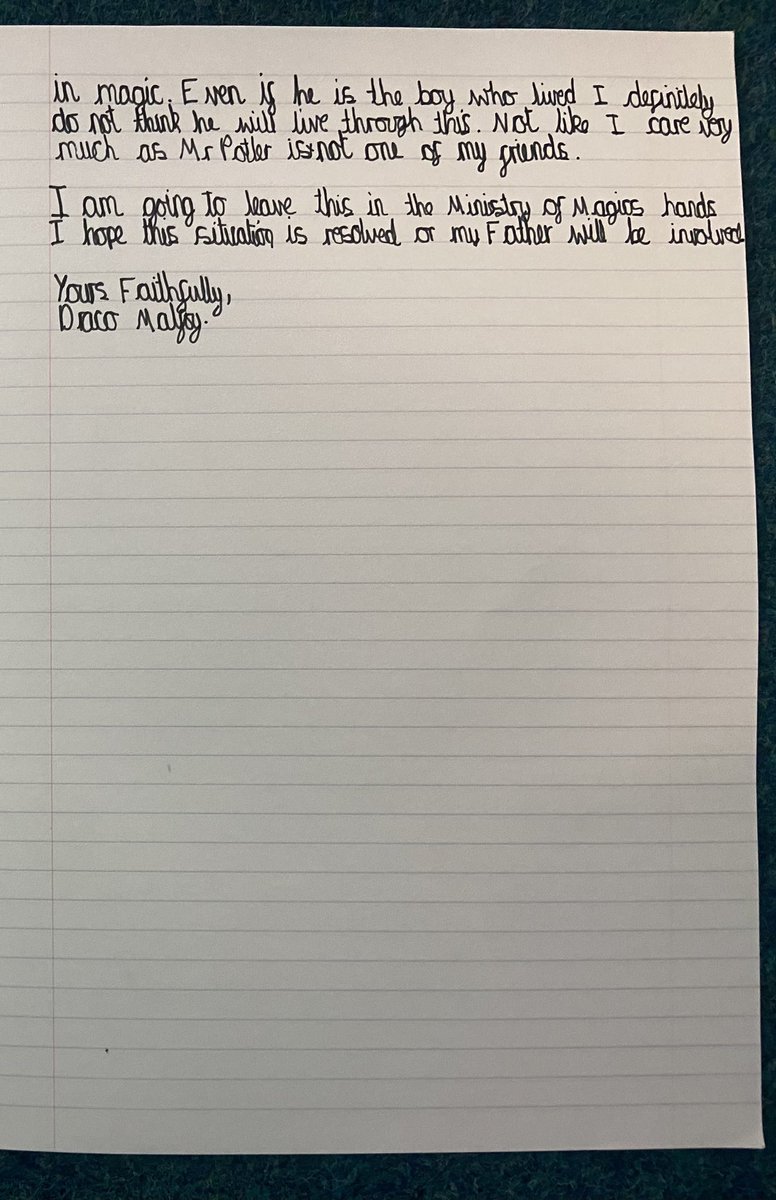 in magic. Even if he is the boy who lived I definitely
do not think he will live through this. Not like I care very
much as Mr Potter is not one of my friends.
I am going to leave this in the Ministry of Magics hands
I hope this situation is resolved or my Father will be involved
Yours Faithfully,
Draco Malfoy.